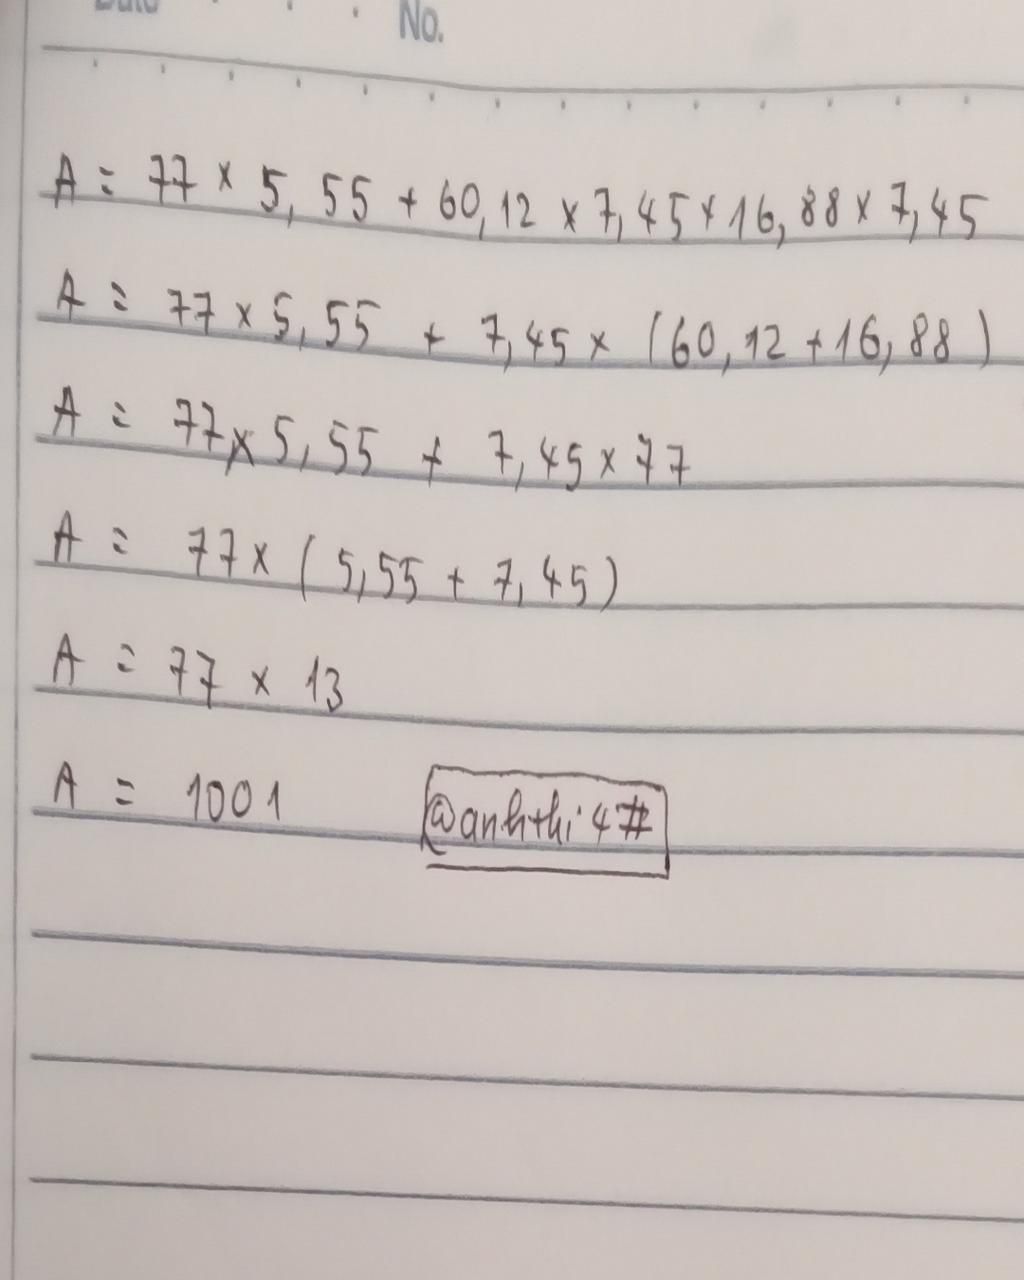 No.
A = 77 x 5,55 + 60,12 x 7,45 + 16,88 x 7,45
A = 77 x 5,55 + 7,45 x (60,12 + 16,88)
A = 77 x 5,55 + 7,45 x 77
A = 77 x (5,55 + 7,45)
A = 77 x 13
A = 1001 @anhthi4#